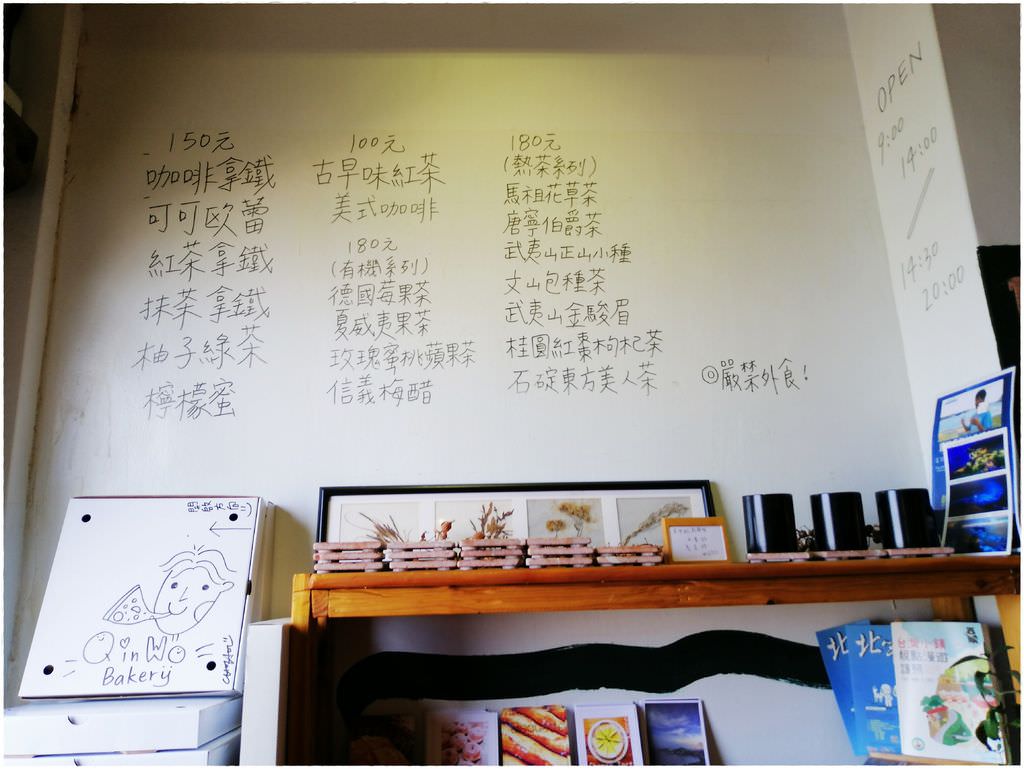 150元
咖啡拿鐵
可可歐蕾
紅茶拿鐵
抹茶拿鐵
柚子綠茶
檸檬蜜
100元
古早味紅茶
美式咖啡
180元
(有機系列)
德國莓果茶
夏威夷果茶
玫瑰蜜桃蘋果茶
信義梅醋
180元
(熱茶系列)
馬祖花草茶
唐寧伯爵茶
武夷山正山小種
文山包種茶
武夷山金駿眉
桂圓紅棗枸杞茶
石碇東方美人茶
◎嚴禁外食!
OPEN
9:00
14:00
14:30
20:00
QinWo
Bakery
北
北
台灣小鎮